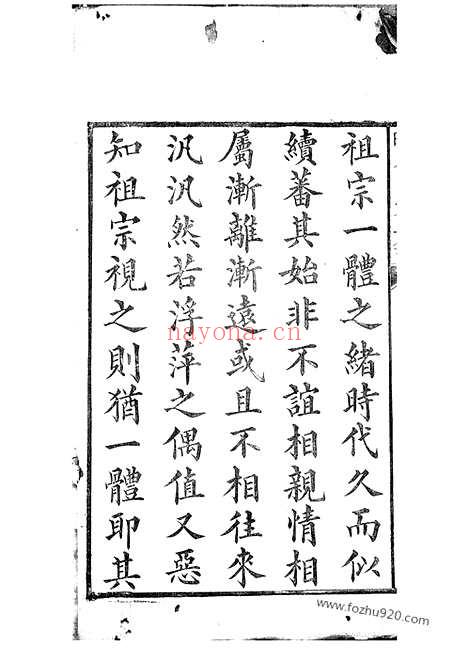 祖宗一體之緒時代久而似
續蕃其始非不誼相親情相
屬漸離漸遠或且不相往來
汎汎然若浮萍之偶值又惡
知祖宗視之則猶一體耶其
nayona.cn
www.fozhu920.com